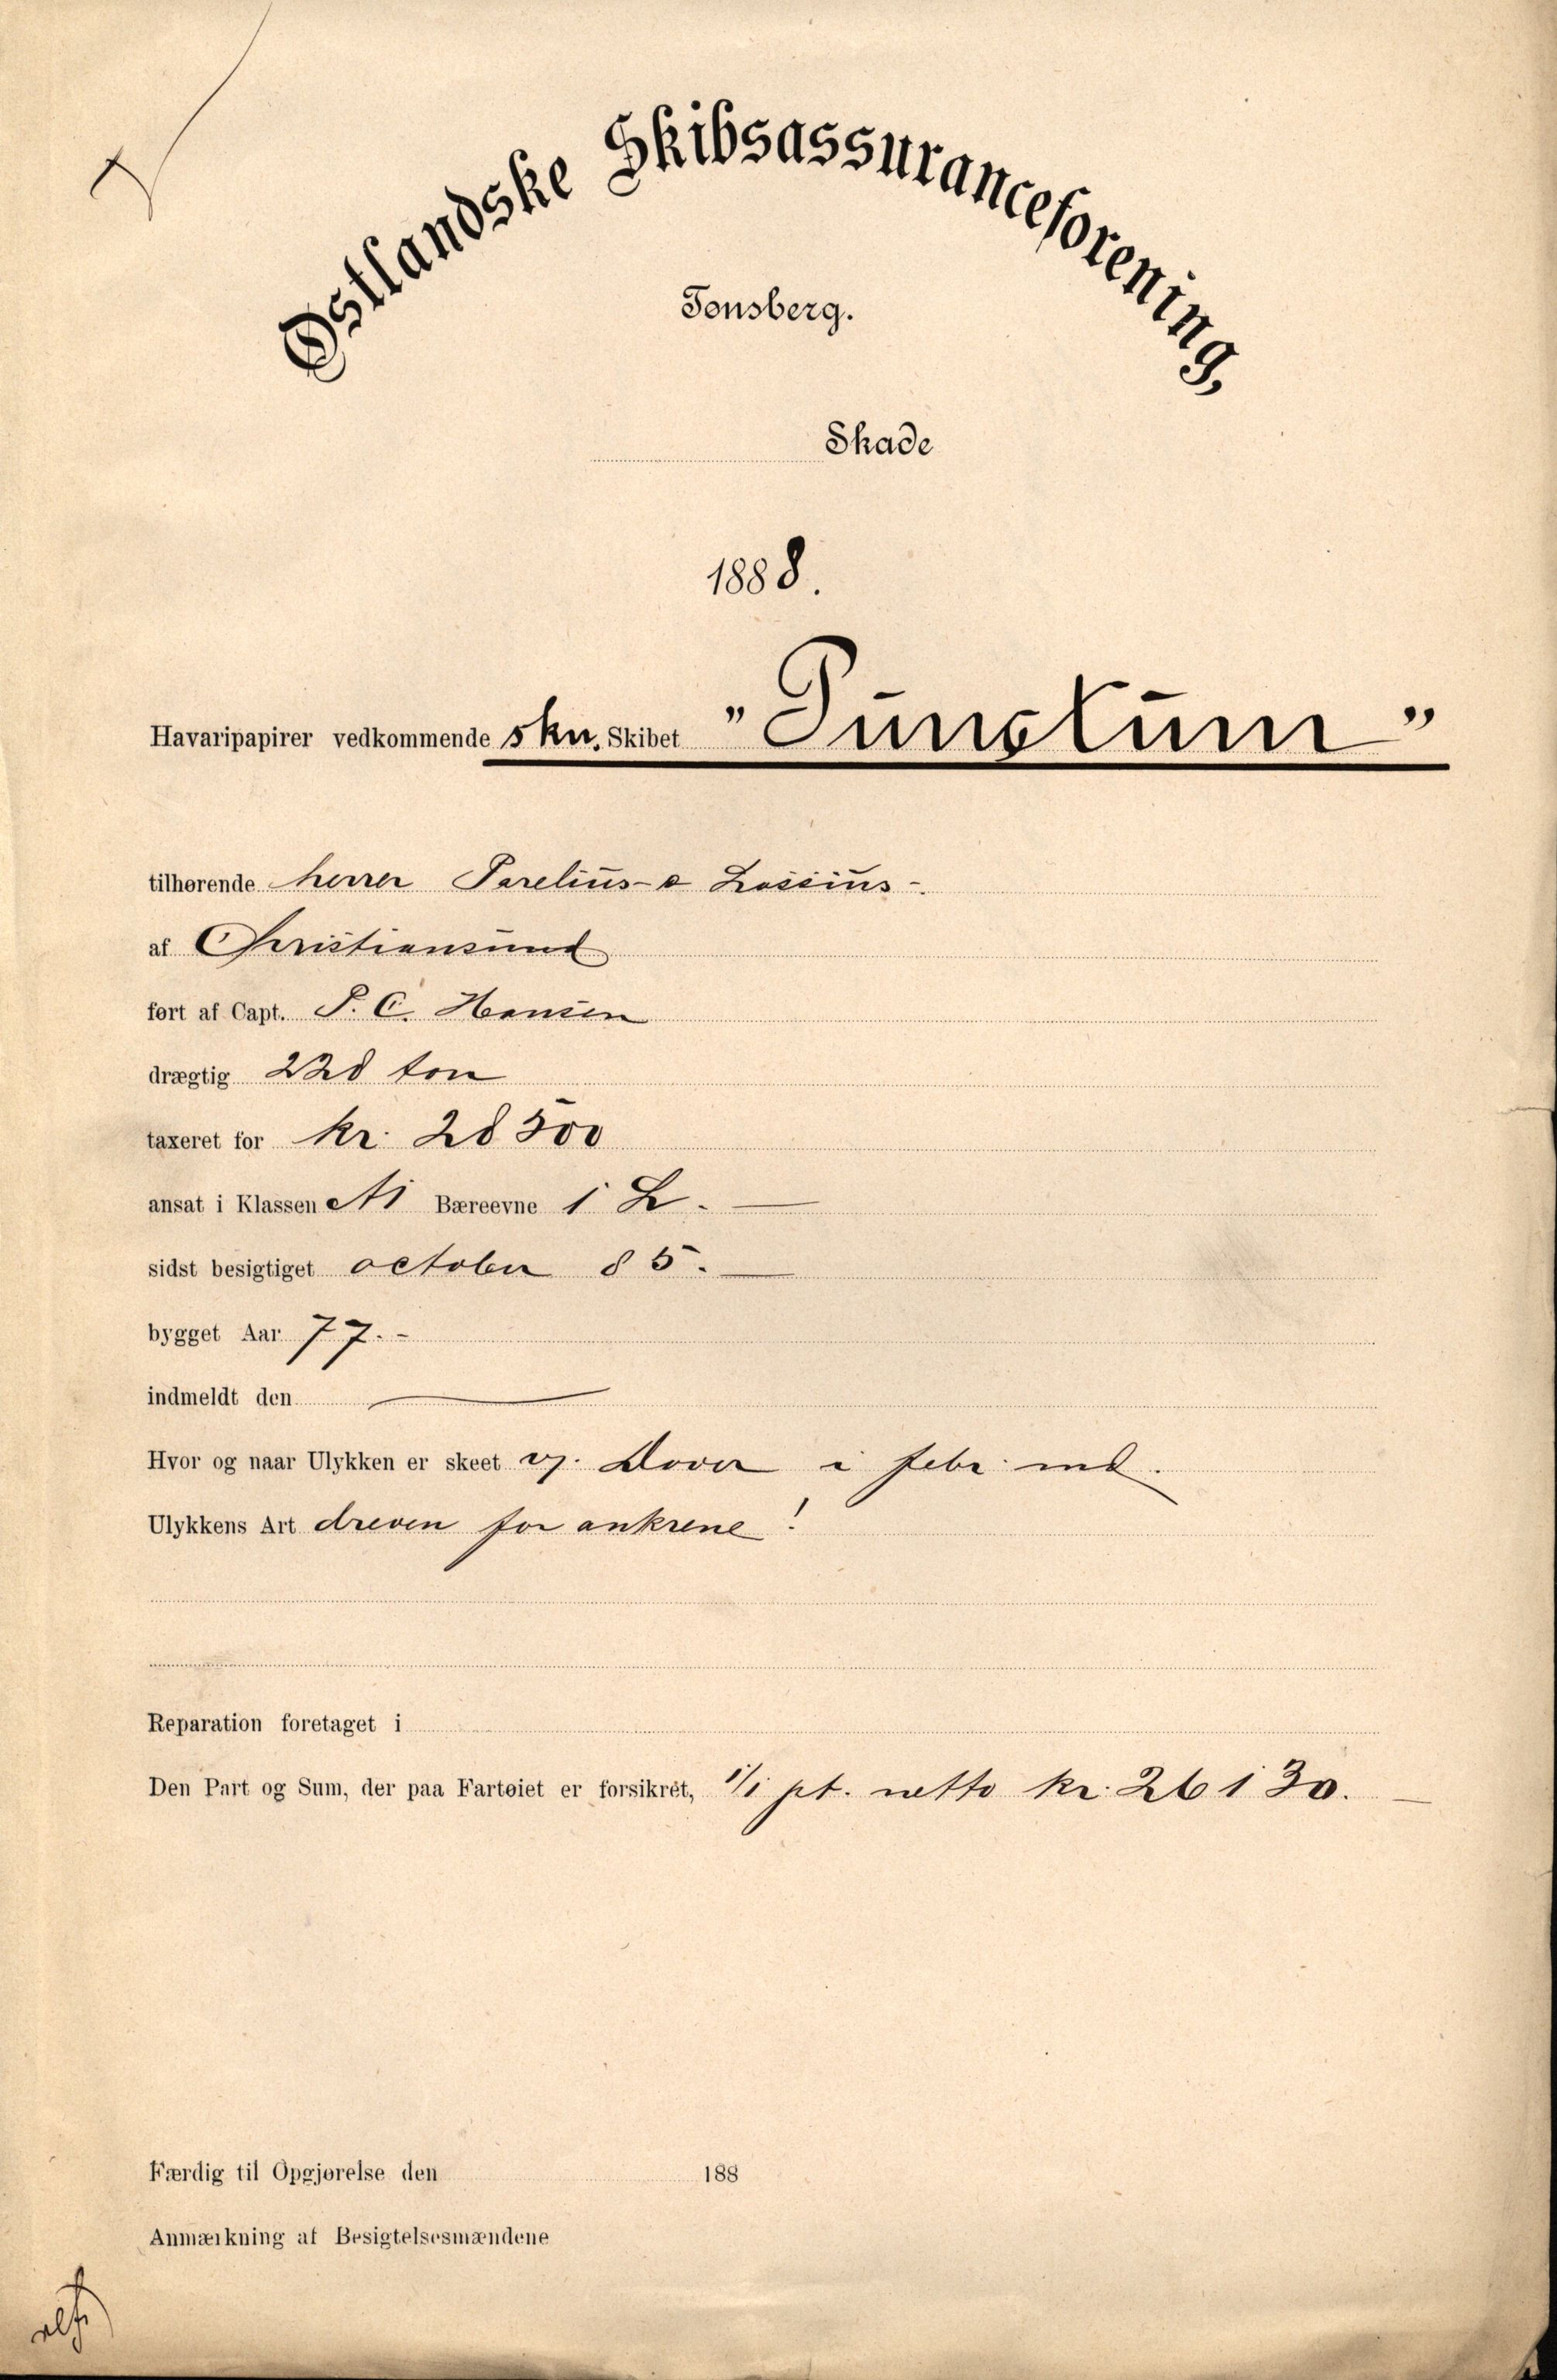 Østlandske Skibsassuranceforening,
Tønsberg.
Skade
1888.
Havaripapirer vedkommende skn. Skibet "Punctum"
tilhørende herrer Parelius & Lossius -.
af Christiansund
ført af Capt. P. C. Hansen
drægtig 228 ton
taxeret for kr. 28500
ansat i Klassen A1 Bæreevne 1 L. —
sidst besigtiget october 85. —
bygget Aar 77. -
indmeldt den —
Hvor og naar Ulykken er skeet v. Dover i febr. md.
Ulykkens Art dreven for ankrene!
Reparation foretaget i
Den Part og Sum, der paa Fartøiet er forsikret, 1/1 pt. netto kr. 26130. —
Færdig til Opgjørelse den 188
Anmærkning af Besigtelsesmændene